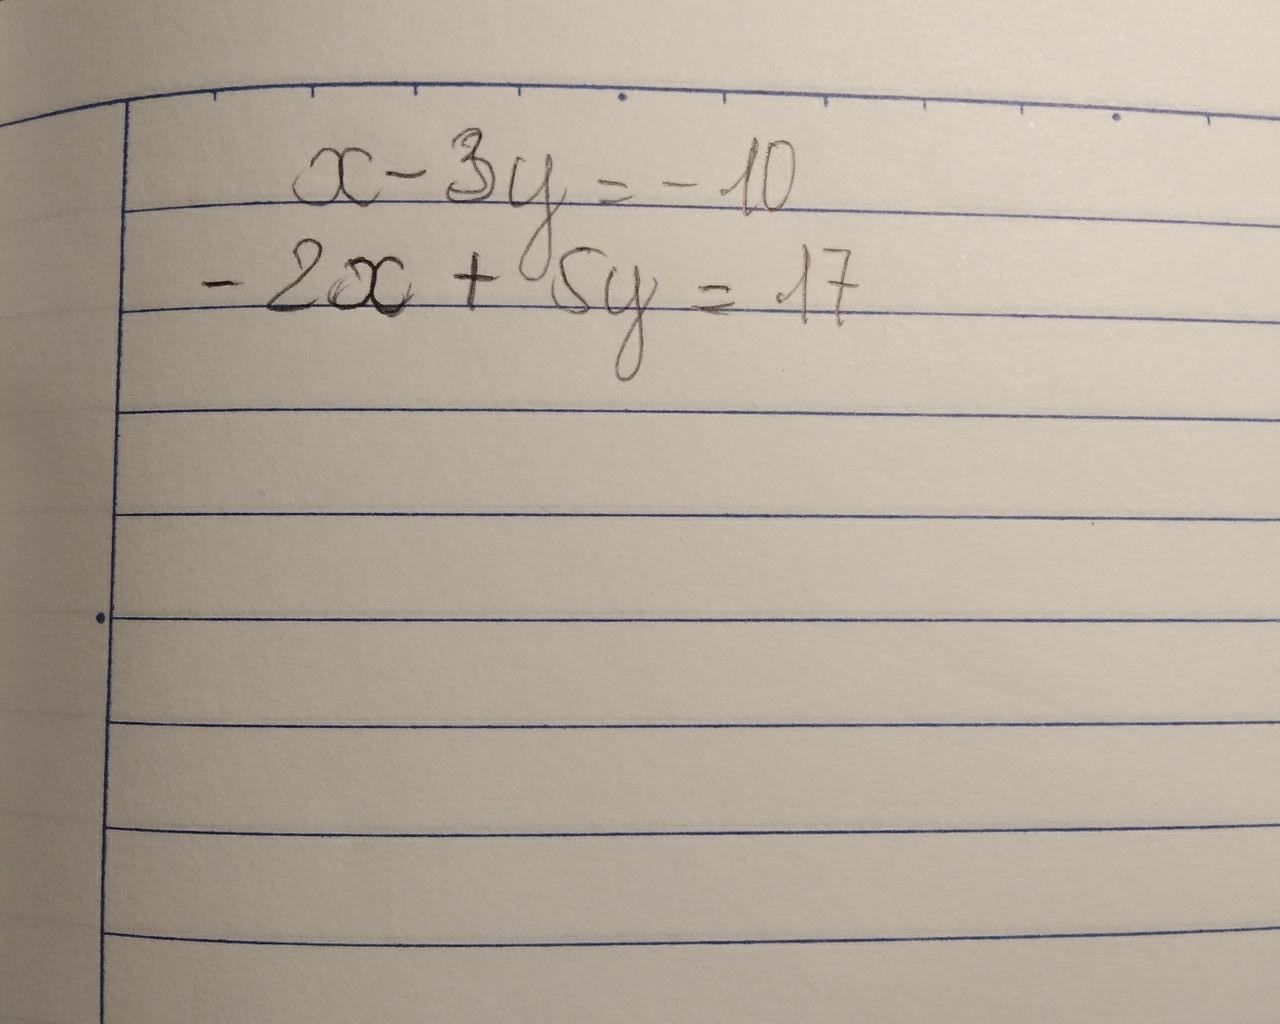 x - 3y = - 10
- 2x + 5y = 17